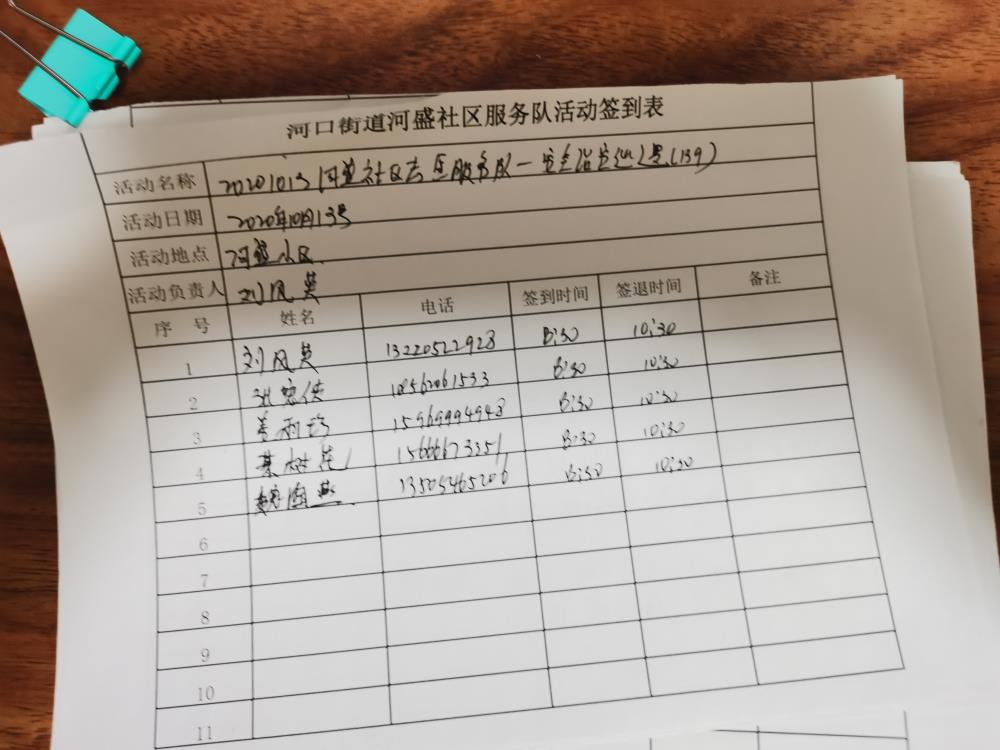 河口街道河盛社区服务队活动签到表
活动名称 20201013河盛社区志愿服务队一安全治安巡逻(139)
活动日期 2020年10月13号
活动地点 河盛小区
活动负责人 刘风英
序 号 姓名 电话 签到时间 签退时间 备注
1 刘风英 13220522928 8:30 10:30
2 18562061533 8:30 10:30
3 姜 15969994948 8:30 10:30
4 树 15666673351 8:30 10:30
5 魏海燕 13505465206 8:30 10:30
6
7
8
9
10
11